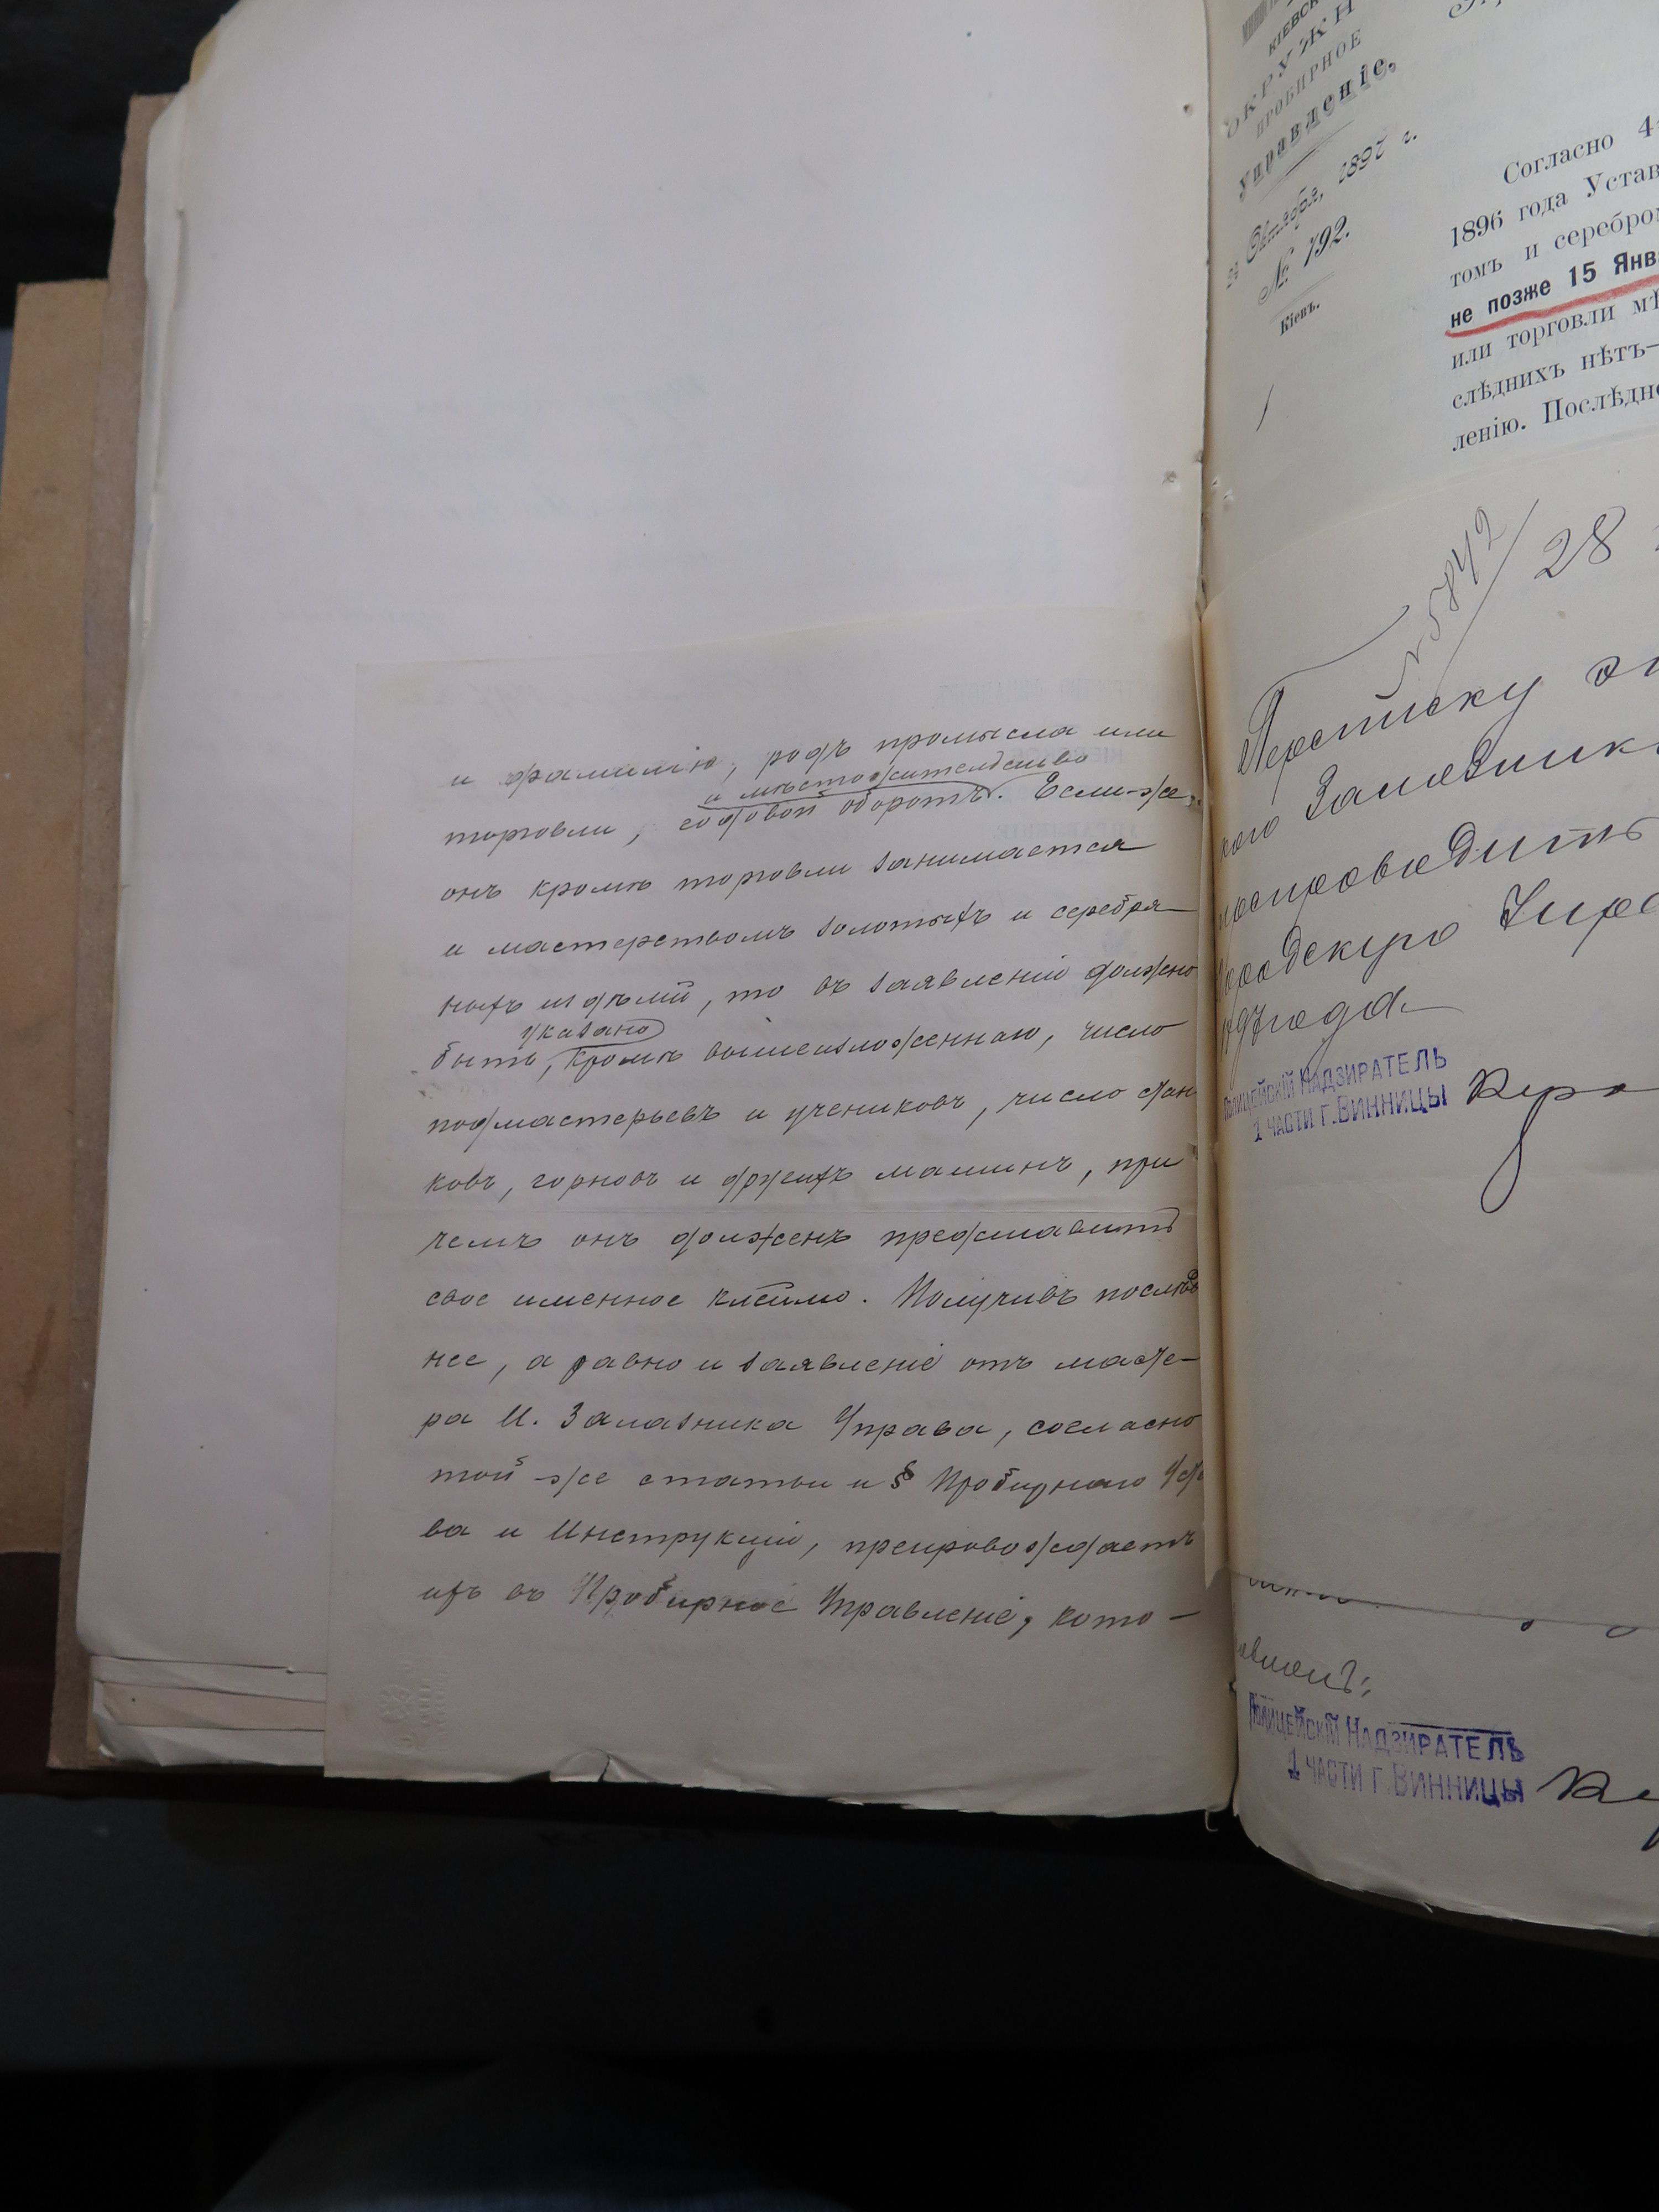 и фамилію, родъ промысла или
и мѣстожительство
торговли, годовой оборотъ. Если-же,
онъ кромѣ торговли занимается
и мастерствомъ золотыхъ и серебря-
ныхъ издѣлій, то въ заявленіи должно
указано
быть, кромѣ вышеизложеннаго, число
подмастерьевъ и учениковъ, число стан
ковъ, горновъ и другихъ машинъ, при
чемъ онъ долженъ представить
свое именное клеймо. Получивъ послѣд
нее, а равно и заявленіе отъ масте-
ра И. Залазника Управа, согласно
той-же статьи и § Пробирнаго Уста
ва и Инструкціи, препровождаетъ
ихъ въ Пробирное Управленіе, кото-
КІЕВСК
ОКРУЖН
ПРОБИРНОЕ
Управленіе.
Октября, 1897 г.
№ 792.
Кіевъ.
Согласно 4
1896 года Устав
томъ и серебром
не позже 15 Янв
или торговли мѣ
слѣднихъ нѣтъ—
ленію. Послѣдн
№ 5842
28
Переписку
кого
препроводить
Городскую Упра
ПОЛИЦЕЙСКІЙ НАДЗИРАТЕЛЬ
1 ЧАСТИ Г. ВИННИЦЫ
ПОЛИЦЕЙСКІЙ НАДЗИРАТЕЛЬ
1 ЧАСТИ Г. ВИННИЦЫ